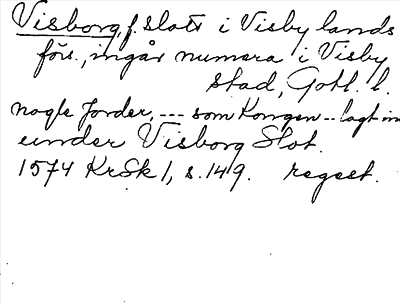 Visborg, f. slott i Visby lands
förs., ingår numera i Visby
stad, Gotl. l.
nogle Jorder, --- som Kongen -- lagt in
under Visborg Slot.
1574 KrSk 1, s. 149. regest.